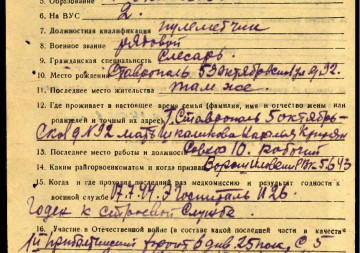 5. Образование
6. На ВУС 2.
7. Должностная квалификация пулеметчик
8. Военное звание рядовой
9. Гражданская специальность слесарь
10. Место рождения г. Ставрополь 5 Октябрьская ул. д 92.
11. Последнее место жительства там же
12. Где проживает в настоящее время семья (фамилия, имя и отчество жены или
родителей и точный их адрес) г. Ставрополь 5 октябрь-
ск д №92 мать
14. Последнее место работы и должность рабочий
Каким райгорвоенкоматом и когда призван Ворошиловским РВК
15. Когда и где проходил раз медкомиссию и результат годности к
военной службе 17.7.44. Эгоспиталь 1126
Годен к строевой службе
16. Участие в Отечественной войне (в составе какой последней части в качестве
1й прибалтийский фронт 6 див. 25 полк, С 5